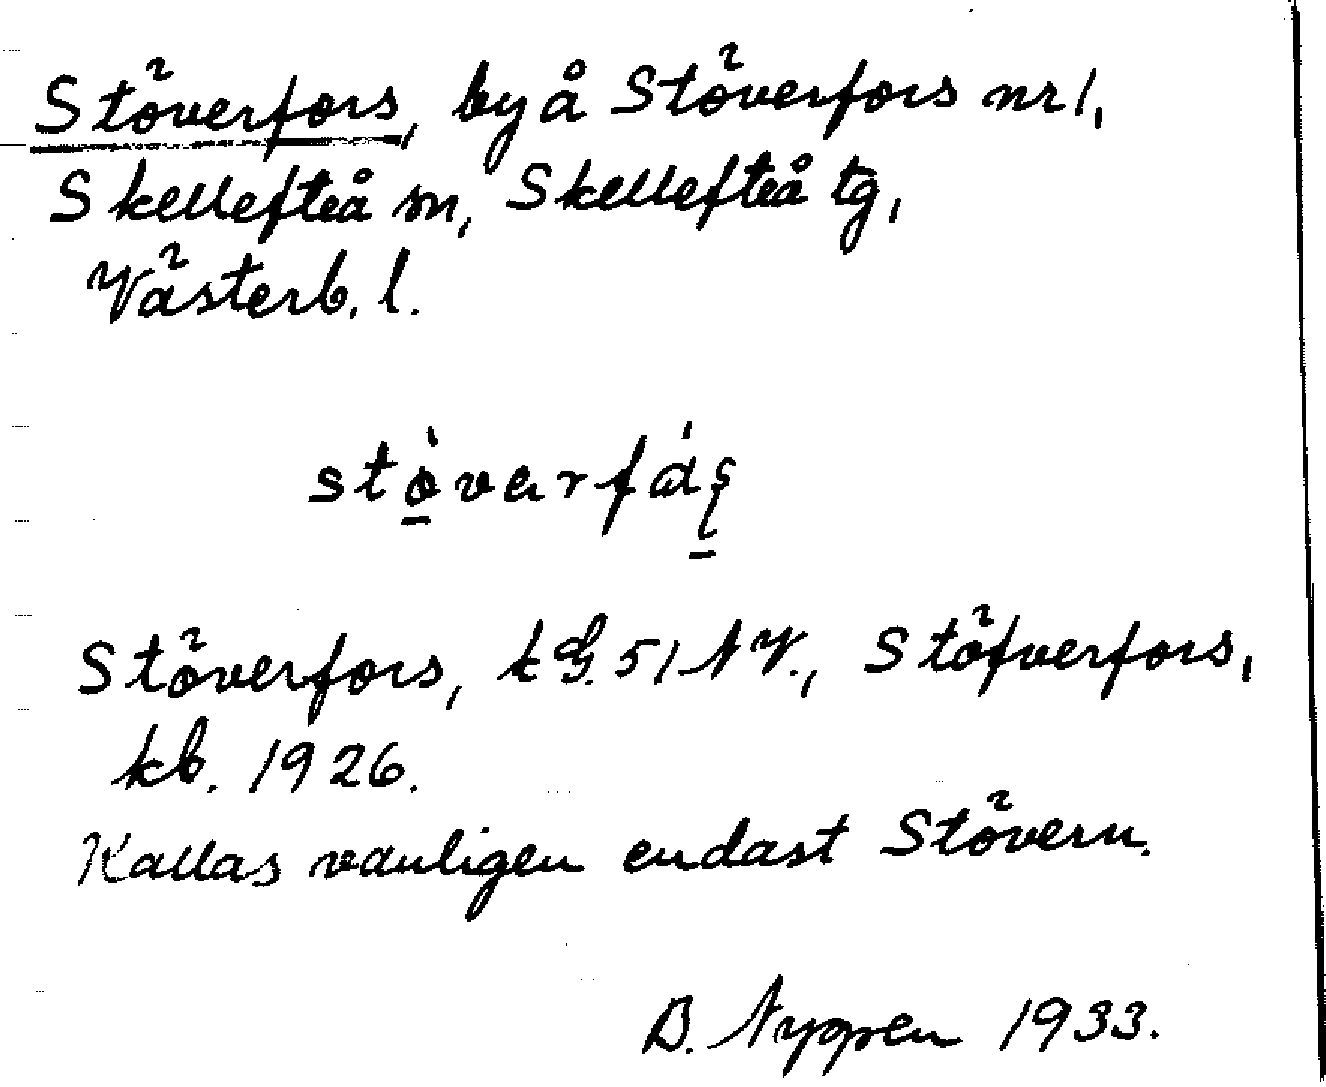 Stöverfors, by å Stöverfors nr 1,
Skellefteå sn, Skellefteå tg,
Västerb. l.
Stöverfors, k G. 51 NV., Stöfverfors,
kb. 1926.
Kallas vanligen endast Stövern.
D. Nyppen 1933.